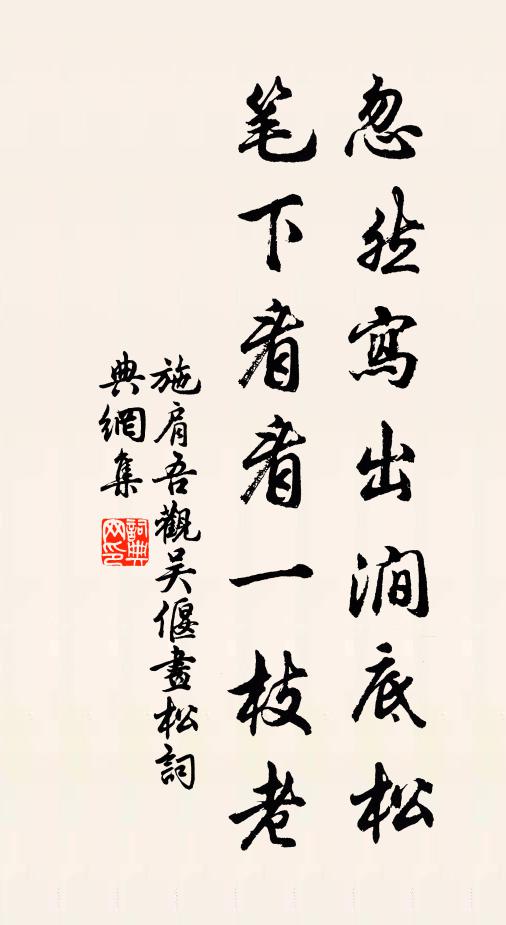 忽然寫出澗底松
笔下看看一枝老
施肩吾觀吴偃畫松詞
典網集
詞典网印